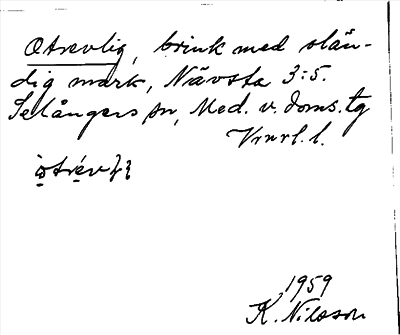 Otrevlig, brink med slän-
dig mark, Nävsta 3:5.
Selångers sn, Med. v. doms. tg
Vnrl. l.
òtrév
1959
K. Nilsson